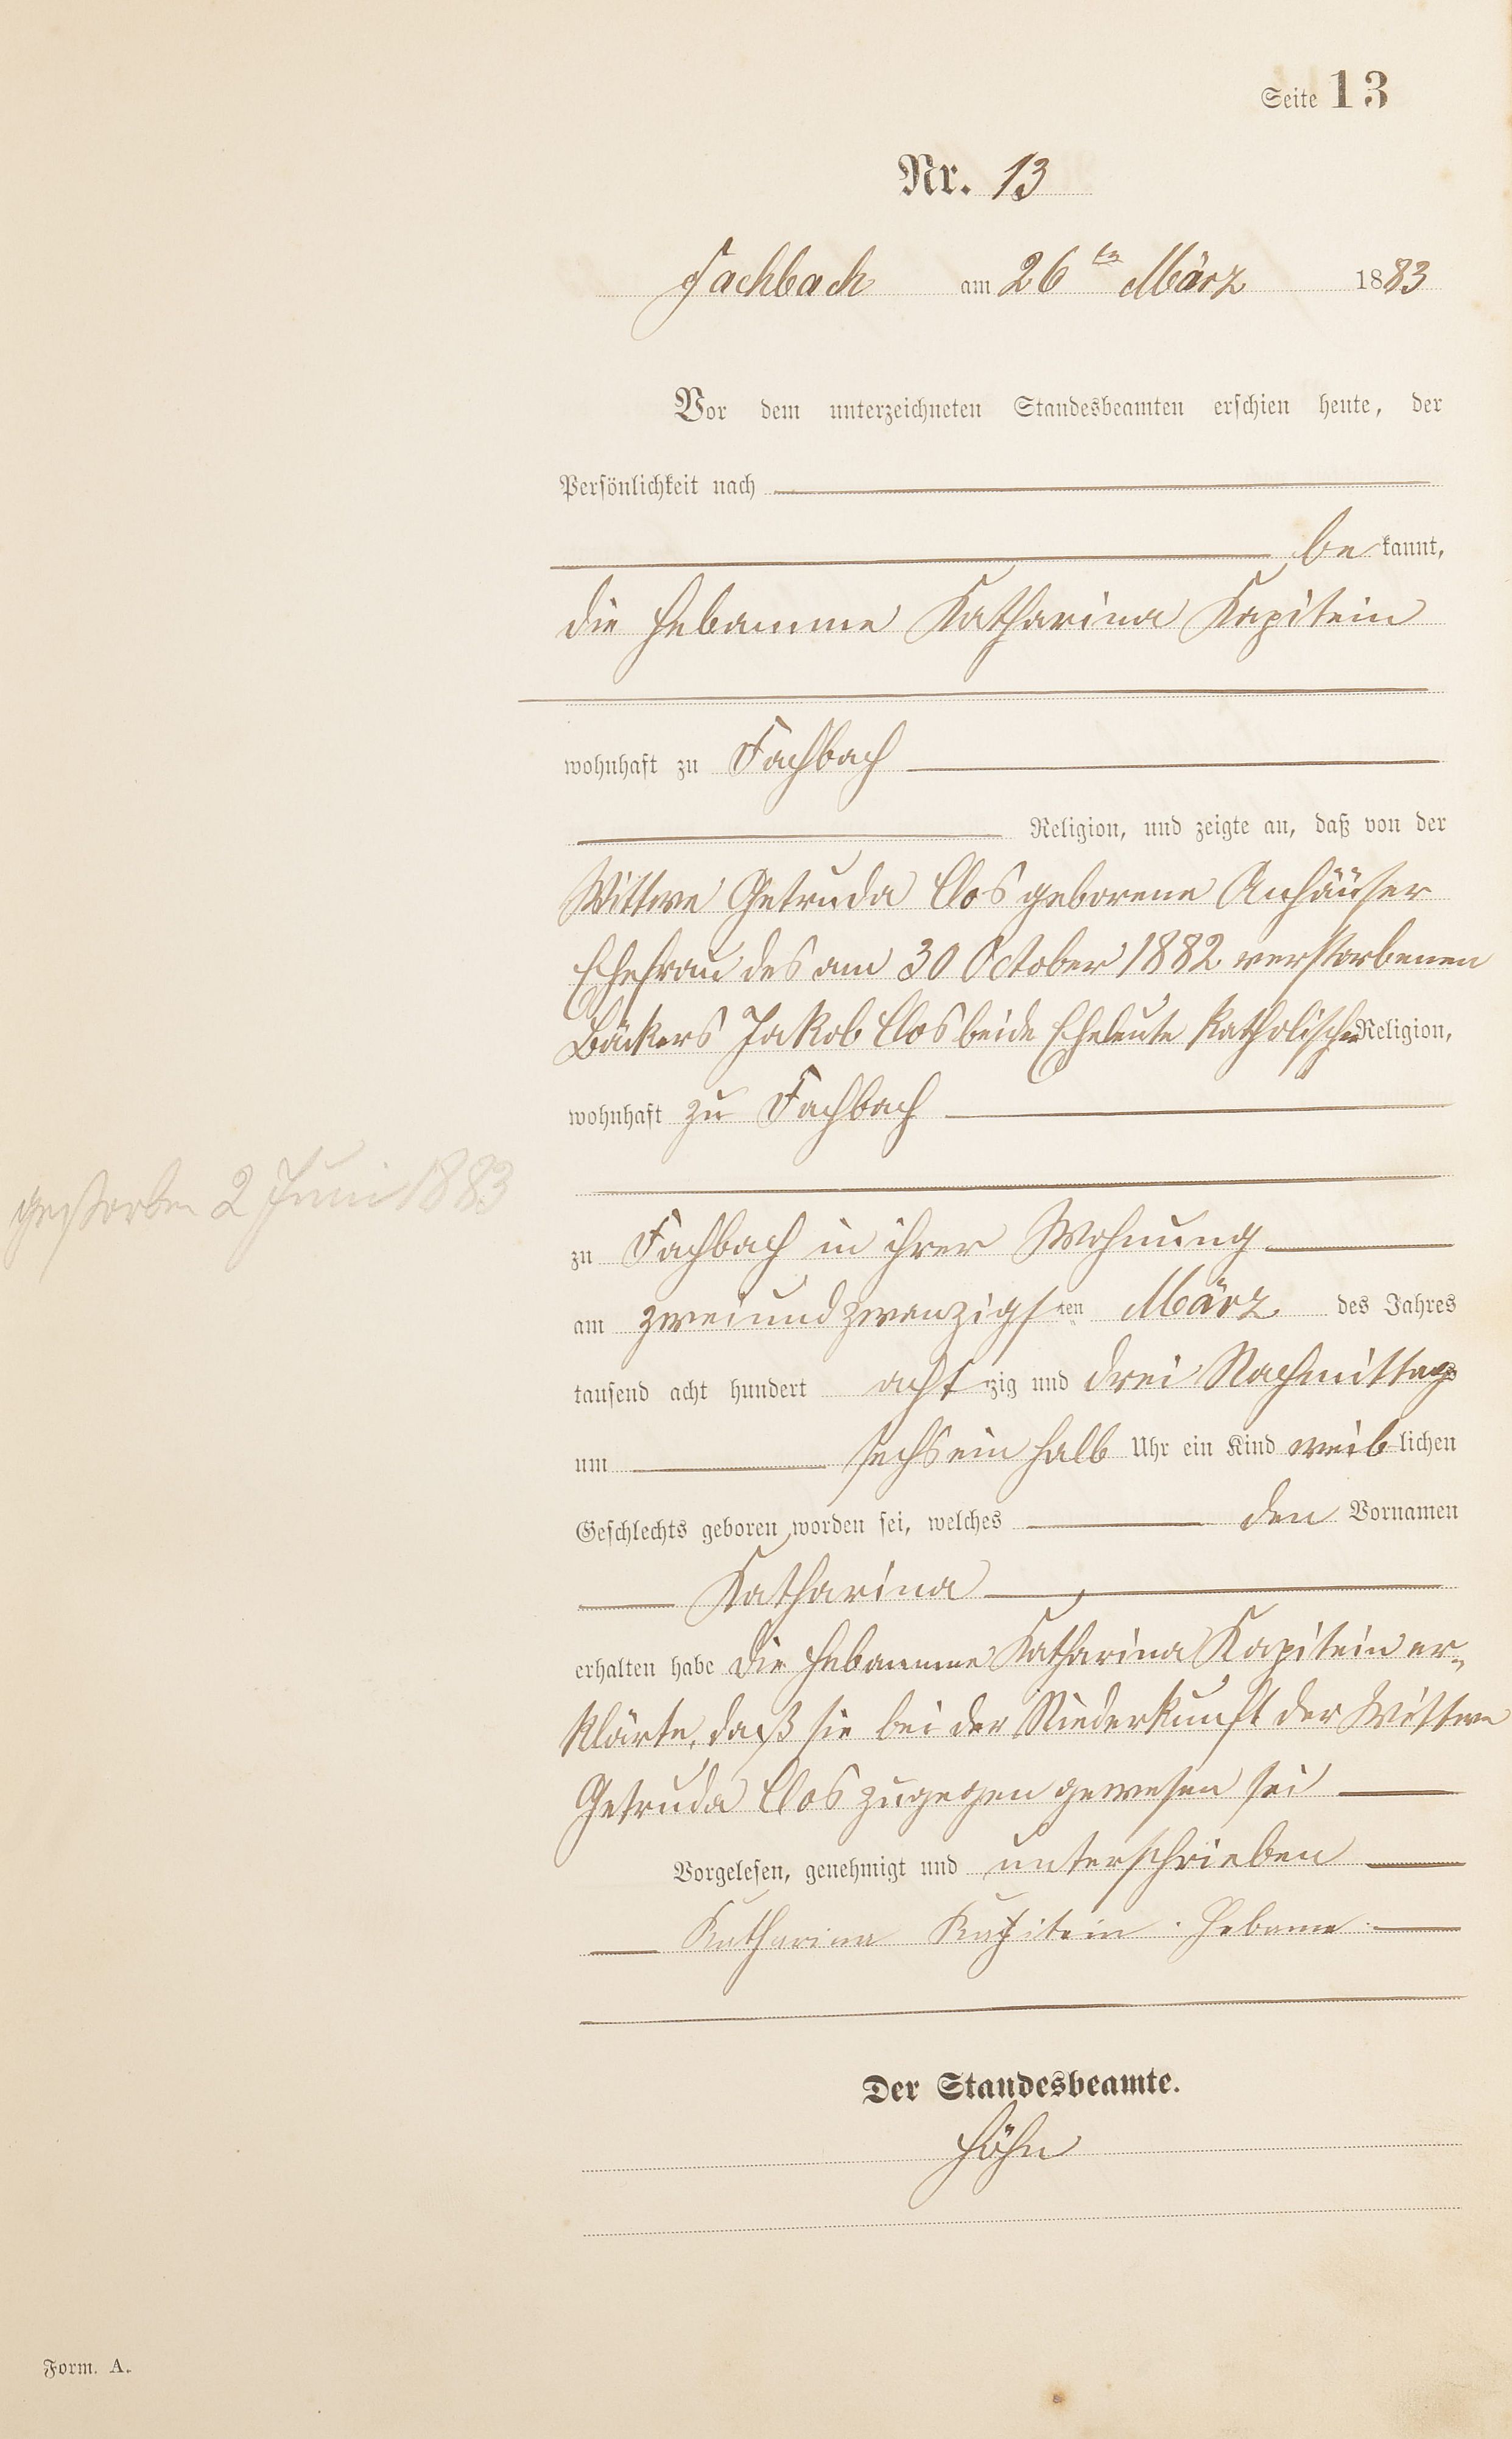 Seite 13
Nr. 13
Fachbach am 26ten März 1883
Vor dem unterzeichneten Standesbeamten erschien heute, der
Persönlichkeit nach
be kannt,
die Hebamme Katharina Kapitein
wohnhaft zu Fachbach
Religion, und zeigte an, daß von der
Wittwe Getruda Clos geborene Anhäuser
Ehefrau des am 30 October 1882 verstorbenen
Bäckers Jakob Clos beide Eheleute katholischer Religion,
wohnhaft zu Fachbach
gestorben 2 Juni 1883
zu Fachbach in ihrer Wohnung
am zweiundzwanzigsten März des Jahres
tausend acht hundert achtzig und drei Nachmittags
um sechs ein halb Uhr ein Kind weiblichen
Geschlechts geboren worden sei, welches den Vornamen
Katharina
erhalten habe die Hebamme Katharina Kapitein er-
klärte, daß sie bei der Niederkunft der Wittwe
Getruda Clos zugegen gewesen sei
Vorgelesen, genehmigt und unterschrieben
Katharina Kapitein Hebame
Der Standesbeamte.
Höhn
Form. A.